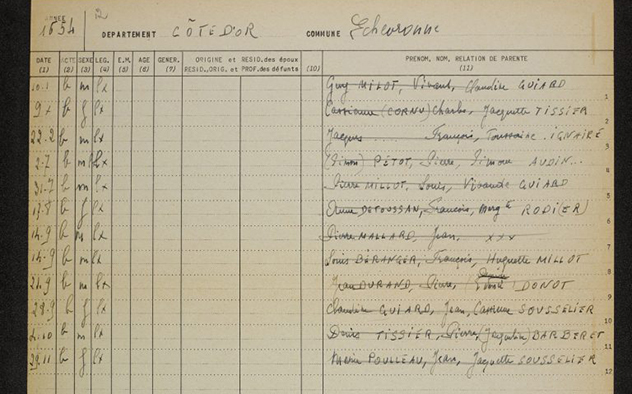 ANNEE 2
1654 DÉPARTEMENT CÔTE D'OR COMMUNE Echevronne
DATE ACTS SEXE LEG. E.M. AGE GENER. ORIGINE et RESID. des époux PRENOM, NOM, RELATION DE PARENTE
(1) (2) (3) (4) (5) (6) (7) RESID., ORIG. et PROF. des défunts (10) (11)
b m lx Guy MILLOT, Vivant, Claudine GUIARD 1
9.1 b f lx (CORNU) Charles, Jacquette TISSIER 2
22.2 b m lx Jacques ...... François, Toussaine IGNAIRE 3
2.7 b m lx (Simon) PETOT, Pierre, Simone AUDIN... 4
21.7 b m lx Pierre MILLOT, Louis, Vivande GUIARD 5
17.8 b f lx Anne DETOUSSAN, François, Marg te RODI(ER) 6
14.9 b m lx Pierre MALLARD, Jean, xxx 7
14.9 b m lx Louis BERANGER, François, Huguette MILLOT 8
21.9 b m lx Jean DURAND, Pierre, DONOT 9
28.9 b f lx Claudine GUIARD, Jean, SOUSSELIER 10
b m lx Denis TISSIER, Pierre, (Jacqueline) BARBERET 11
29.11 b f lx POULLEAU, Jean, Jaquette SOUSSELIER 12